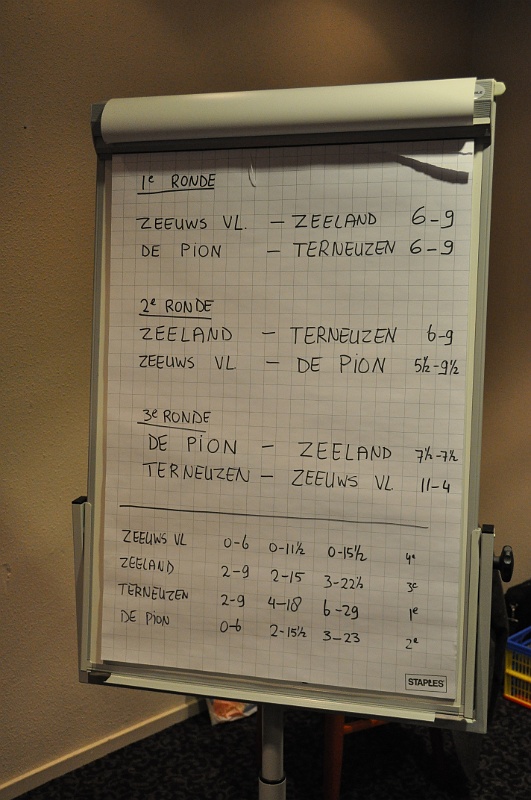 1e RONDE
ZEEUWS VL. - ZEELAND 6-9
DE PION - TERNEUZEN 6-9
2e RONDE
ZEELAND - TERNEUZEN 6-9
ZEEUWS VL - DE PION 5½-9½
3e RONDE
DE PION - ZEELAND 7½-7½
TERNEUZEN - ZEEUWS VL 11-4
ZEEUWS VL 0-6 0-11½ 0-15½ 4e
ZEELAND 2-9 2-15 3-22½ 3e
TERNEUZEN 2-9 4-18 6-29 1e
DE PION 0-6 2-15½ 3-23 2e
STAPLES